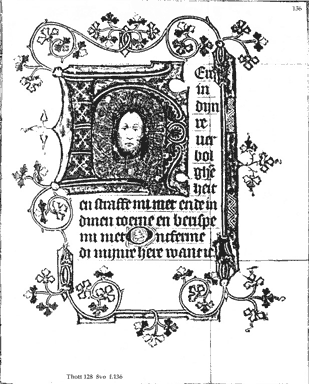 136
Ere
in
dijn
re
uer
bol
ghē
heit
en straffe mi niet ende in
dinen toerne en berispe
mi niet Ontferme
di mijnre here want ic
Thott 128 8vo f.136